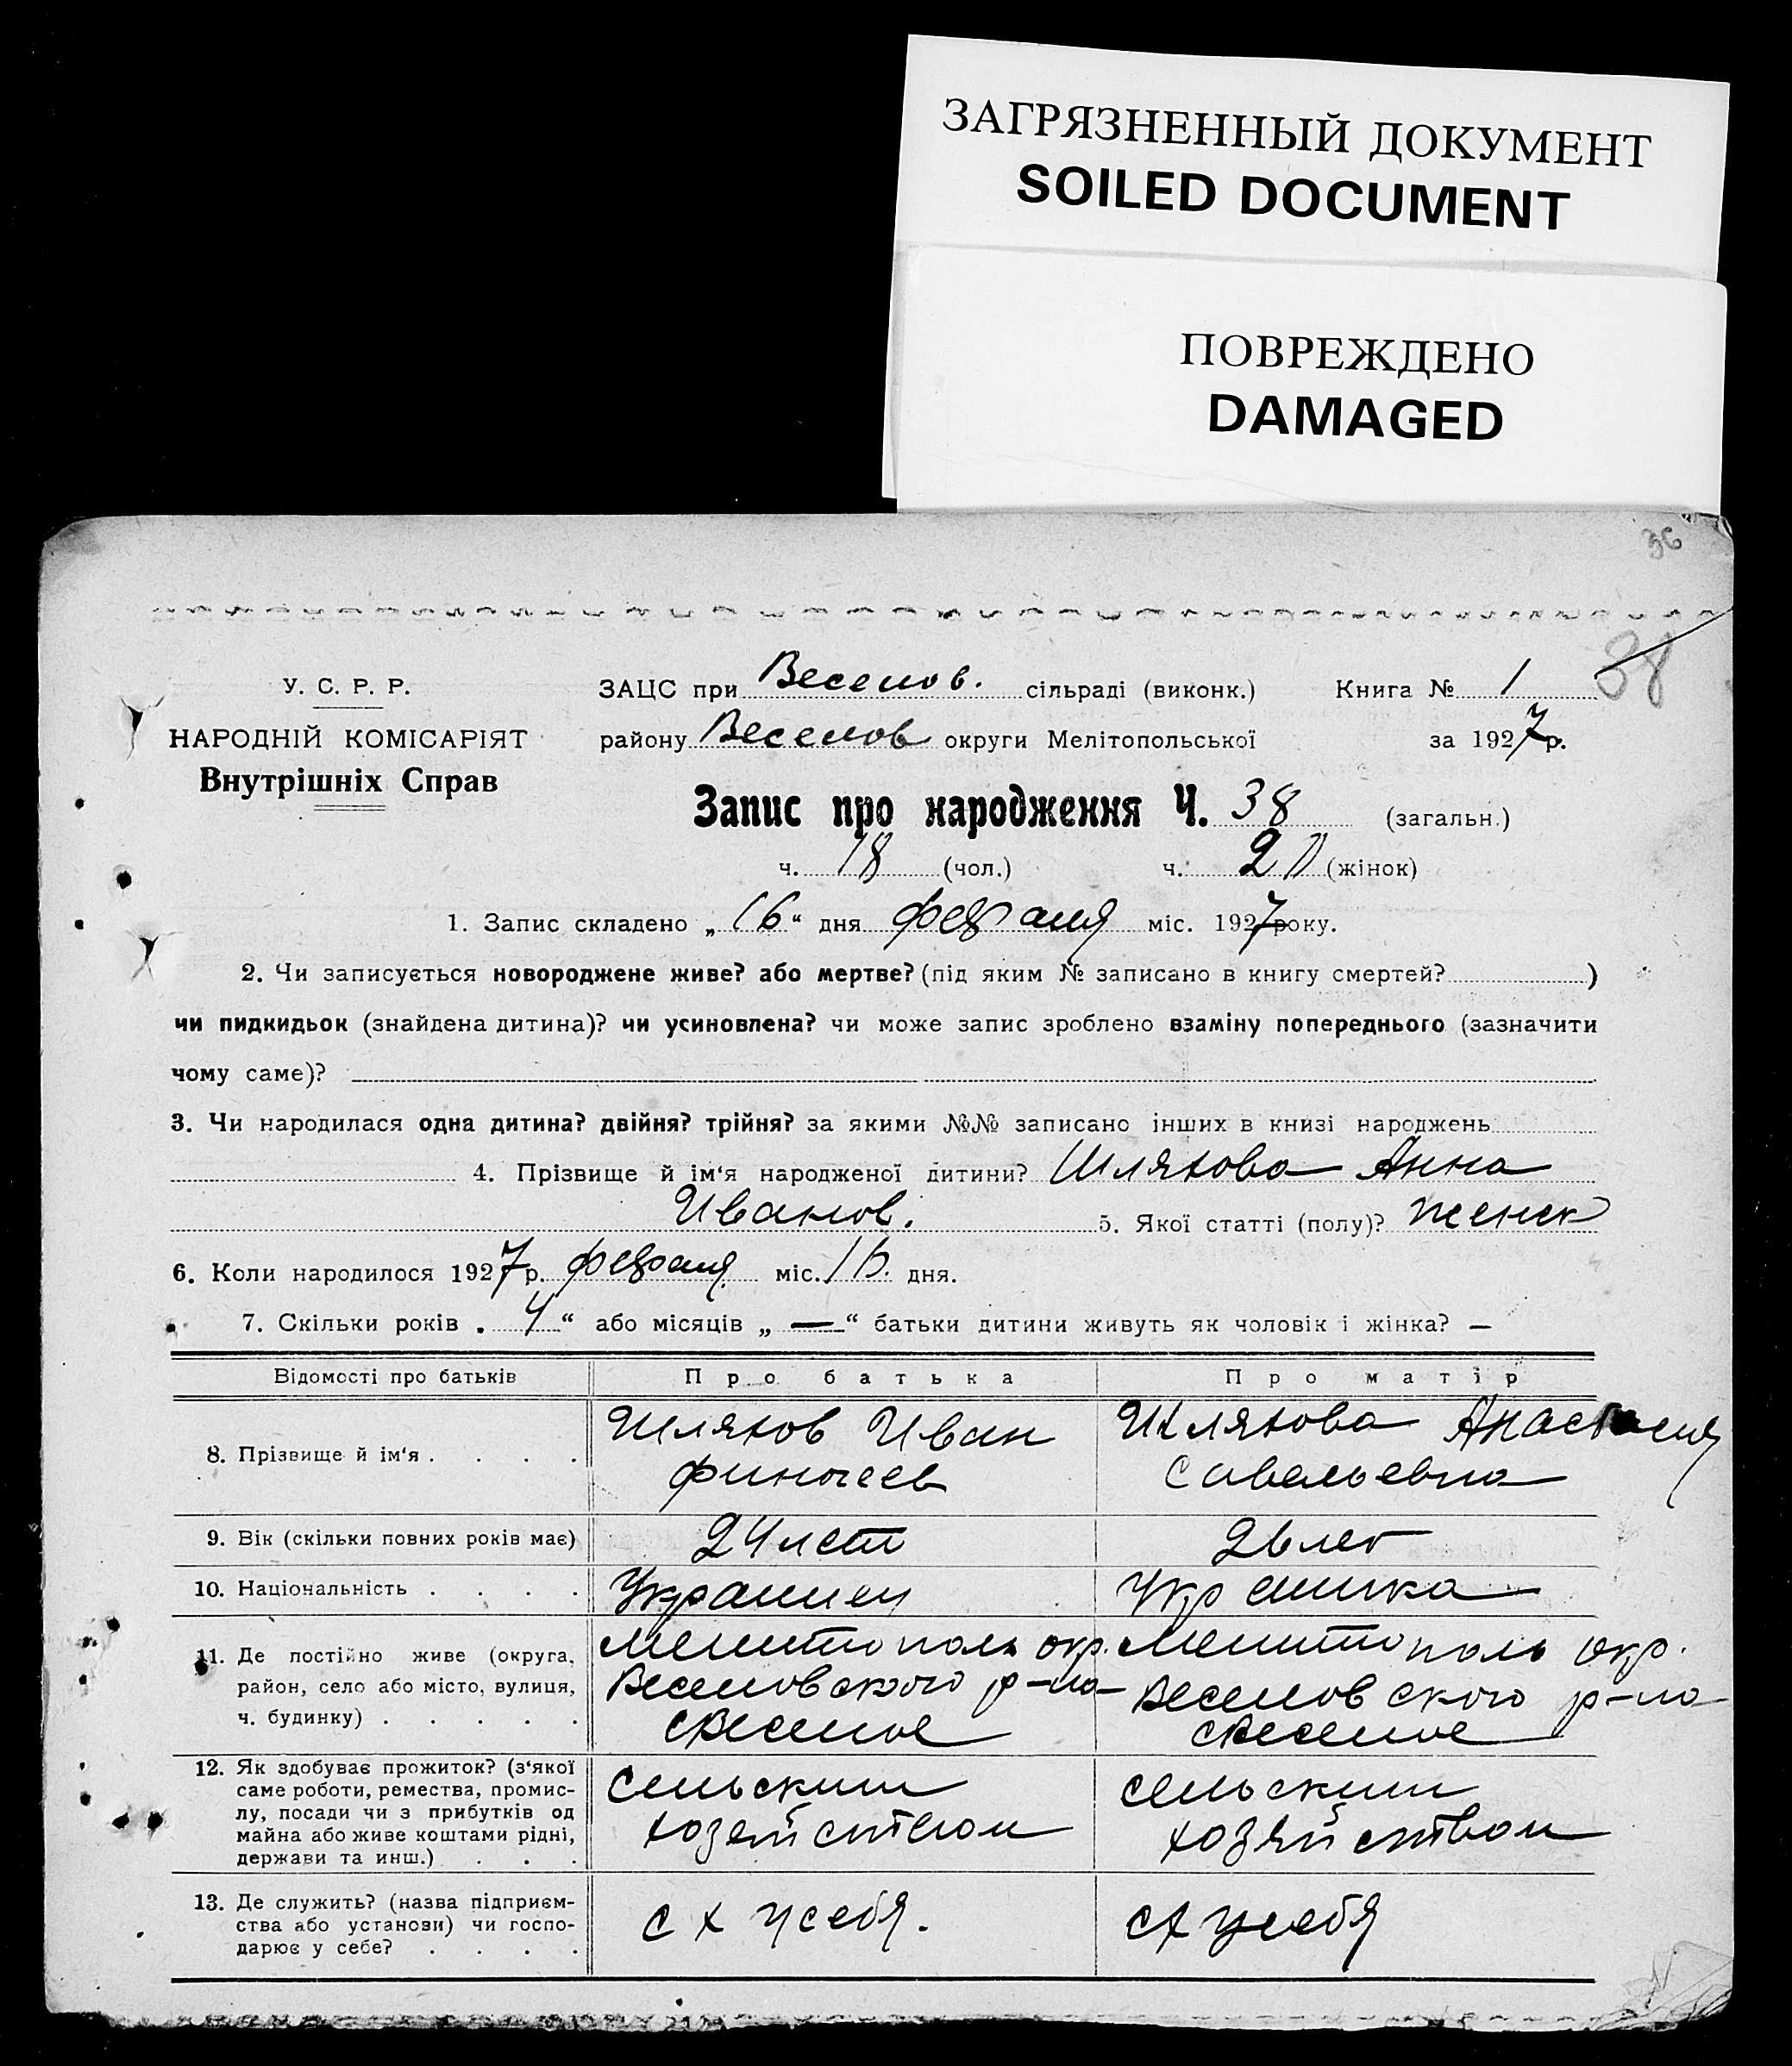 ЗАГРЯЗНЕННЫЙ ДОКУМЕНТ
SOILED DOCUMENT
ПОВРЕЖДЕНО
DAMAGED
36
38
У. С. Р. Р.
НАРОДНІЙ КОМІСАРІЯТ
Внутрішніх Справ
ЗАЦС при Веселов. сільраді (виконк.) Книга № 1
району Веселов округи Мелітопольської за 1927 р.
Запис про народження Ч. 38 (загальн.)
ч. 18 (чол.) ч. 20 (жінок)
1. Запис складено „16“ дня февраля міс. 1927 року.
2. Чи записується новороджене живе? або мертве? (під яким № записано в книгу смертей? )
чи пидкидьок (знайдена дитина)? чи усиновлена? чи може запис зроблено взаміну попереднього (зазначити
чому саме)?
3. Чи народилася одна дитина? двійня? трійня? за якими №№ записано інших в книзі народжень
4. Прізвище й ім‘я народженої дитини? Шляхова Анна
Иванов. 5. Якої статті (полу)? женск
6. Коли народилося 1927 р. февраля міс. дня.
7. Скільки років „ 4 “ або місяців „ — “ батьки дитини живуть як чоловік і жінка? —
Відомості про батьків Про батька Про матір
8. Прізвище й ім‘я . . . .
Шляхов Иван
Шляхова Анастасия
Савельевна
9. Вік (скільки повних років має) 24 лет 26 лет
10. Національність . . . . Украинец Украинка
11. Де постійно живе (округа,
район, село або місто, вулиця,
ч. будинку) . . . . .
Мелитополь окр.
Веселовского р-на
с Веселое
Мелитополь окр.
Веселовского р-на
с Веселое
12. Як здобуває прожиток? (з‘якої
саме роботи, ремества, промис-
лу, посади чи з прибутків од
майна або живе коштами рідні,
держави та инш.) . . .
Сельским
хозяйством
Сельским
хозяйством
13. Де служить? (назва підприєм-
ства або установи) чи госпо-
дарює у себе? . . . .
с х у себя.
с х у себя